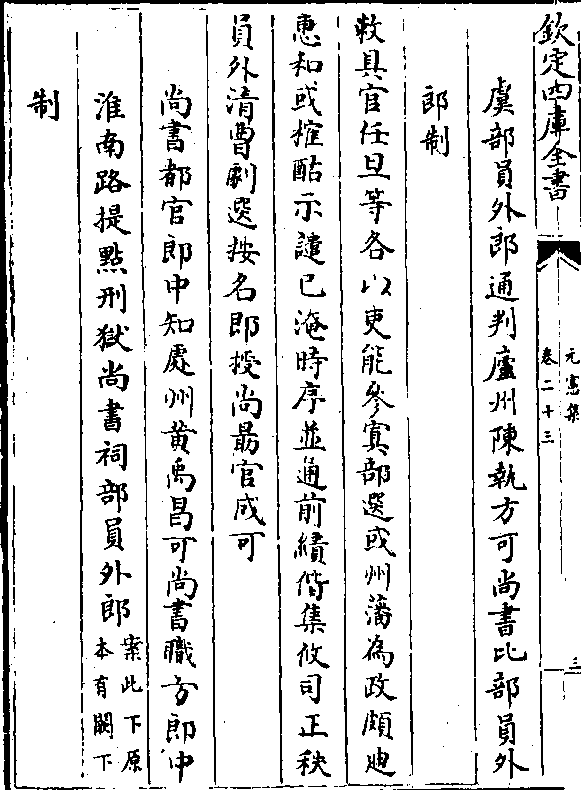 欽定四庫全書
元憲集
卷二十三
三
虞部員外郎通判廬州陳執方可尚書比部員外
郎制
敕具官任旦等各以吏能參寘部選或州藩為政頗迪
惠和或榷酤示譴已淹時序並通前績偕集攸司正秩
員外清曹劇選按名即授尚勗官成可
尚書都官郎中知處州黄禹昌可尚書職方郎中
淮南路提點刑獄尚書祠部員外郎案此下原本有闕下
制